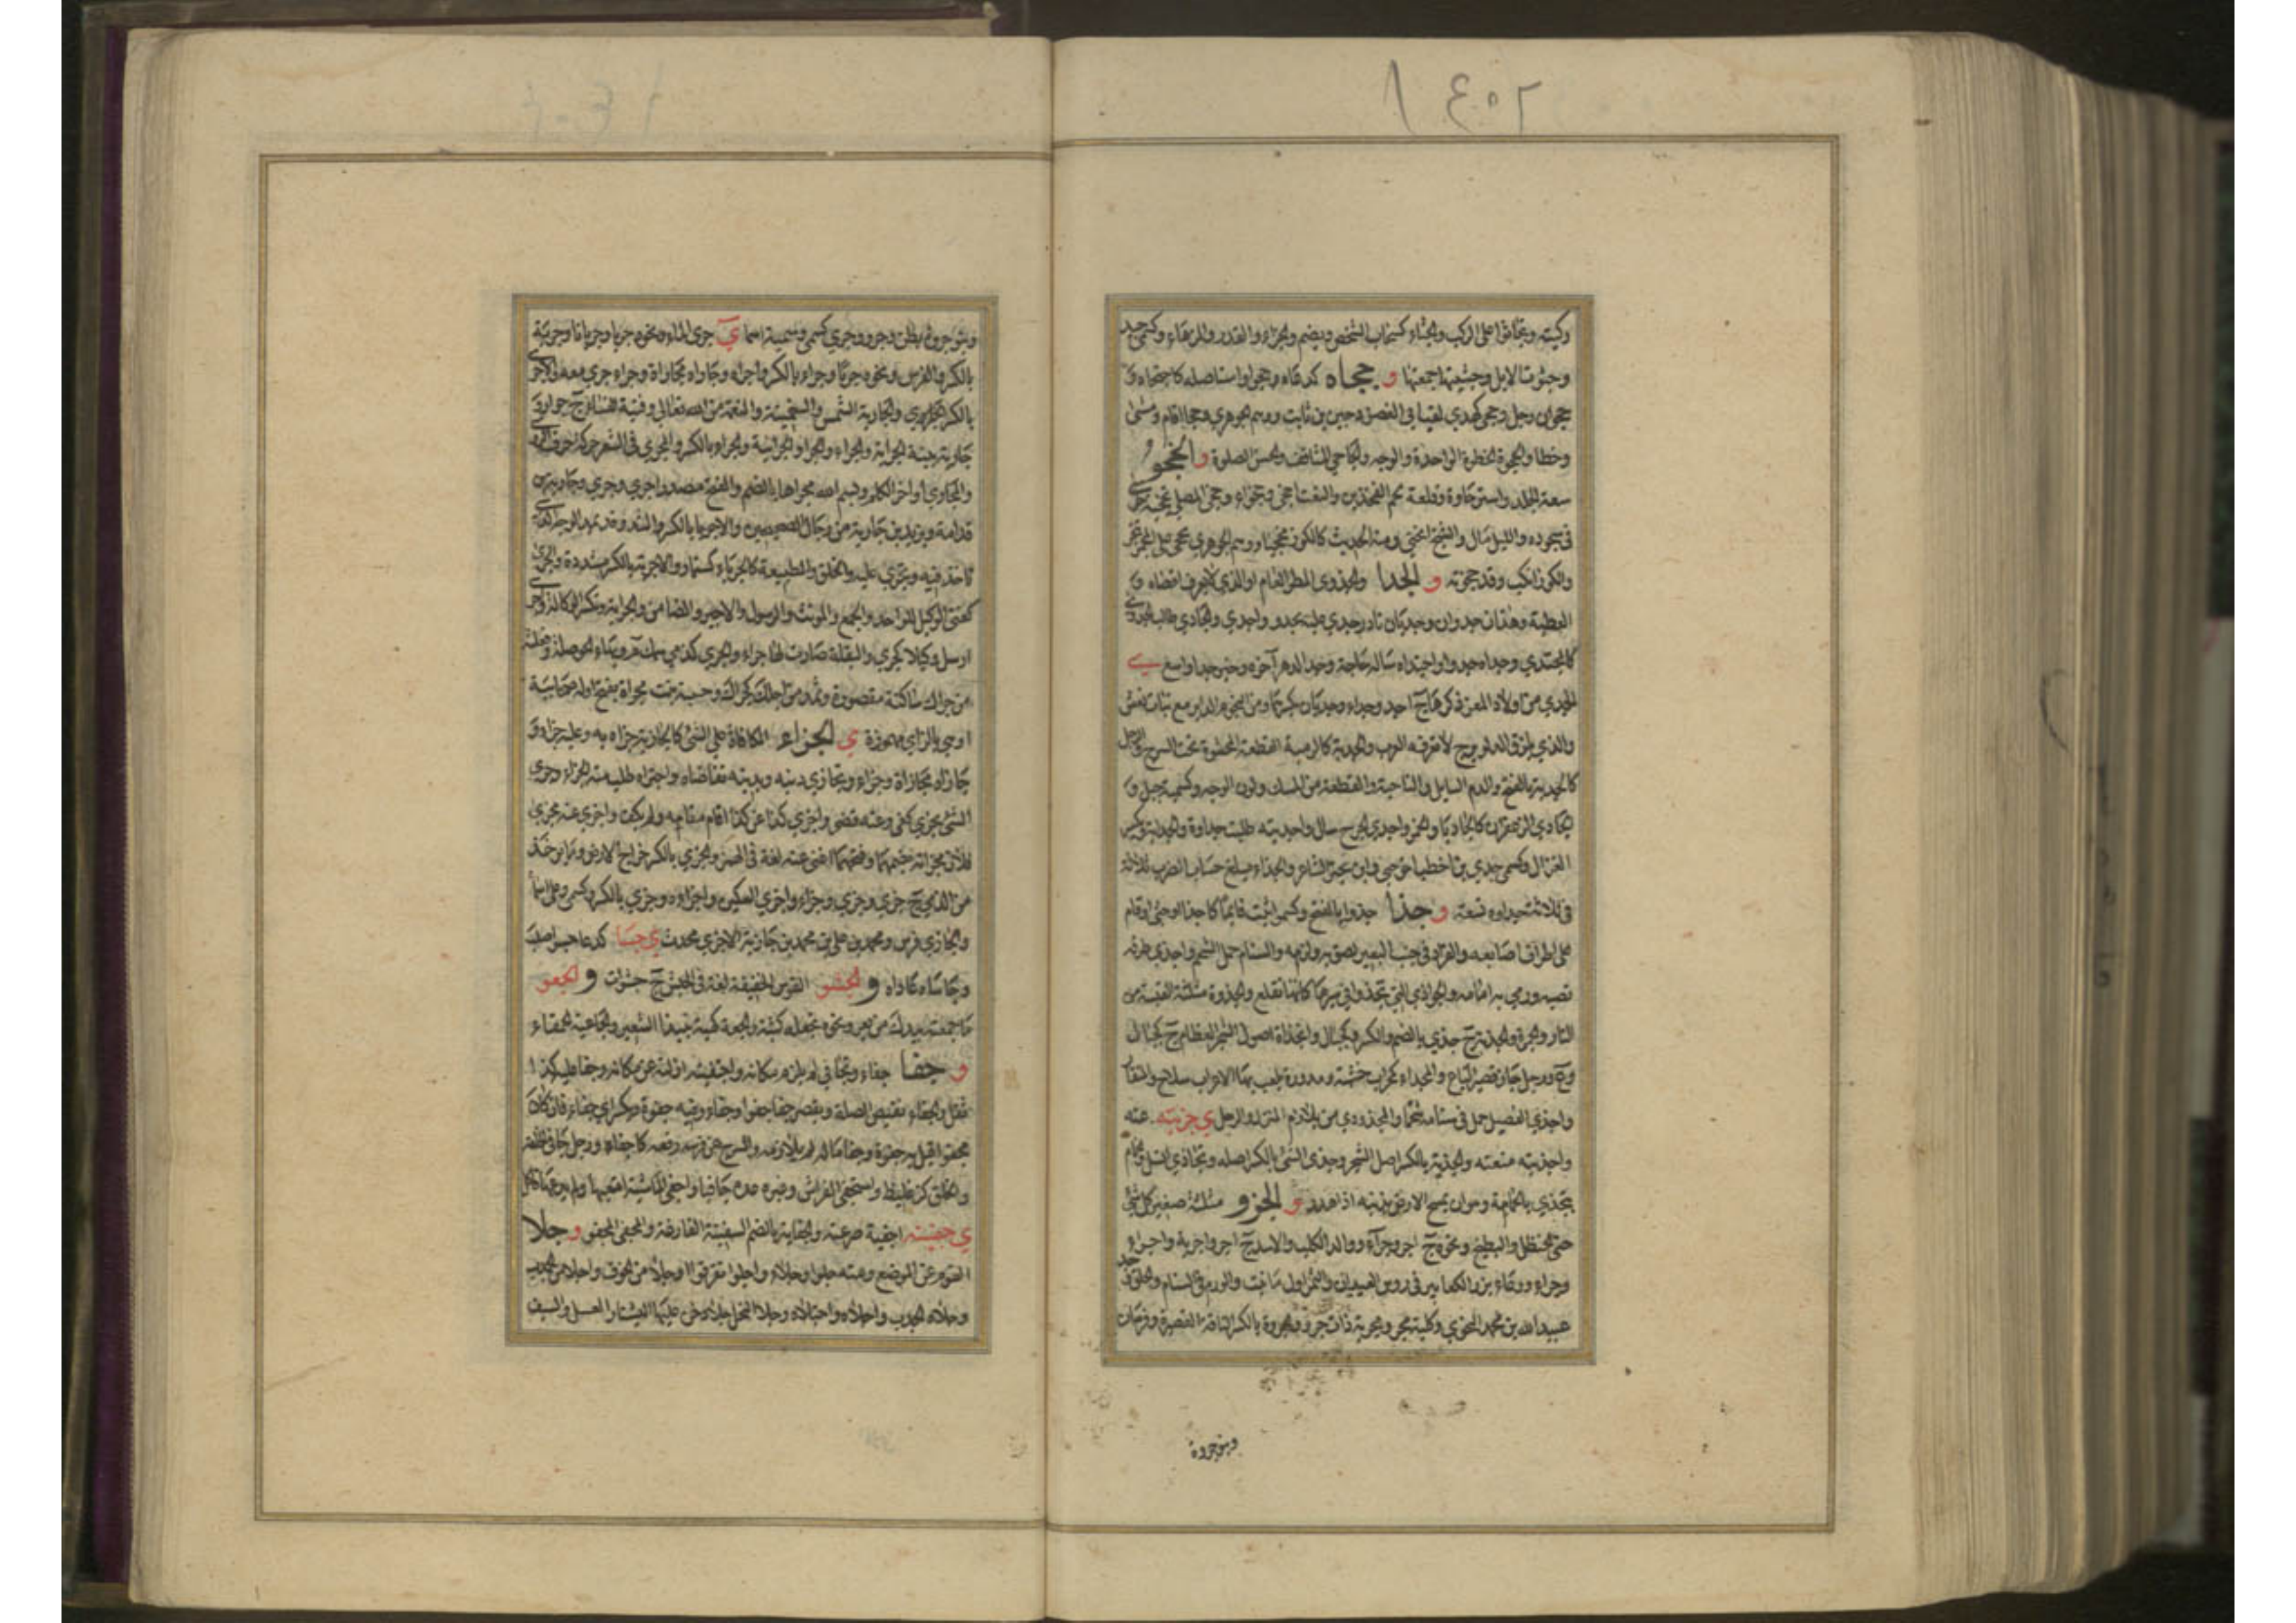 ١٤٠٢
وكبته وتجاثوا على الركب والجثاء كسحاب الشخص ويضم والجزاء والقدر والزهاء وكسمي جد
وجثوت الابل وجثيتها جمعتها و حجاه كدعاه وجحوا واستاصله كاجتحاه و
جحوان رجل وجحى كهدى لقب ابى الغصن دجين بن ثابت ووهم الجوهري وجحا اقام ومشى
وخطا والجحوة الخطوة الواحدة والوجه والجاحي المثاقف والحسن الصلوة والجخو
سعة الجلد واسترخاوه وقلعة لحم الفخذين والنعت اجخى وجخواء وجخى المصلي تجخية خوى
فى سجوده والليل مال والشيخ انحنى ومنه الحديث كالكوز مجخيا ووهم الجوهري تجخى على المجمر تبخر
والكوز انكب وقد جخوته و الجدا والجدوى المطر العام او الذي لا يعرف اقصاه و
العطية وهذان جدوان وجديان نادر جدي عليه يجدو واجدي والجادي طالب الجدوى
كالمجتدي وجداه جدوا واجتداه ساله حاجة وجدا الدهر آخره وخير جدا واسع ي
الجدي من اولاد المعز ذكرها ج اجد وجداء وجديان بكسرهما ومن النجوم الداير مع بنات نعش
والذي يلزق الدلو برج لا تعرفه العرب والجدية كالرمية القطعة المحشوة تحت السرج والرحل
كالجدية بالفتح والدم السايل والناحية والقطعة من المسك ولون الوجه وكسمية جبل و
الجادي الزعفران كالجاديا والخمر واجدي الجرح سال واجديته طلبت جداوه والجداية ويكسر
الغزال وكسمى جدي بن اخطب اخو حيي وابن الشاعر والجداء مبلغ حساب الضرب ثلاثة
فى ثلاثة جداوه تسعة و جذا جذوا بالفتح وكسمو ثبت قايما كاجذا او جثى او قام
على اطراف اصابعه والقراد فى جنب البعير لصق به ولزمه والسنام حمل الشحم واجذى طرفه
نصبه ورمى به امامه والجواذي التي تجذو فى سيرها كانها تقلع والجذوة مثلثة القبسة من
النار والجمرة والجذية ج جذي بالضم والكسر وكجبال والجذاة اصول الشجر العظام ج كجبال
وع ورجل جاذ قصير الباع والمجذاء كمحراب خشبة مدورة يلعب بها الاعراب سلاح والمنقار
واجذي الفصيل حمل فى سنامه شحما والمجذوذي من يلازم المنزل والرحل ي جذيته عنه
واجذيته منعته والجذية بالكسر اصل الشجر وجذى الشئ بالكسر اصله وتجاذي انسل وحمام
يتجذي بالحمامة وهو ان يمسح الارض بذنبه اذا هدر و الجرو مثلثة صغير كل شئ
حتى الحنظل والبطيخ ونحوه ج اجر وجراء وولد الكلب والاسد ج اجر واجرية واجراء
وجراء ووعاء بزر الكعابير فى روس العيدان والثمر اول ما نبت والورم فى السنام والحلق وجد
عبيد الله بن محمد النحوي وكلبة مجر ومجرية ذات جرو والجروة بالكسر الناقة القصيرة وفرسان
وبنو جروة
وبنو جروة بطن وجرو وجري كسمي وسمية اسما ي جرى الماء ونحوه جريا وجريانا وجرية
بالكسر والفرس ونحوه جريا وجراء بالكسر واجراه وجاراه مجاراة وجراء جري معه والاجري
بالكسر الجري والجارية الشمس والسفينة والنعمة من الله تعالى وفتية النساء ج جوار و
جارية بينة الجراية والجراء والجرا والجرائية والجراء بالكسر والمجرى فى الشعر حركة حرف الروى
والمجاري اواخر الكلم وبسم الله مجراها بالضم والفتح مصدرا جري وجري وجارية بن
قدامة ويزيد بن جارية من رجال الصحيحين والاجريا بالكسر والشد وقد يمد الوجه الذي
تاخذ فيه وتجري عليه والخلق والطبيعة كالجرياء كسنمار والاجرية بالكسر مشددة والجري
كغني الوكيل للواحد والجمع والمونث والرسول والاجير والضامن والجراية وتكسر الوكالة واجرى
ارسل وكيلا كجري والبقلة صارت لها جراء والجري كذمي سمك م وبهاء الحوصلة وفعلته
من جراك ساكنة مقصورة وتمد من اجلك كجرائك وحبيبة بنت ابي تجراة بفتح اوله صحابية
او هي بالزاي مهموزة ي الجزاء المكافاة على الشئ كالجازية جزاه به وعليه جزاء و
جازاه مجازاة وجزاء وتجازي دينه وبدينه تقاضاه واجتزاه طلب منه الجزاء وجزى
الشئ يجزي كفى وعنه قضى واجزي كذا عن كذا قام مقامه ولم يكف واجزي عنه مجزي
فلان ومجزاته بضمهما وفتحهما اغنى عنه لغة فى الهمز والجزي بالكسر خراج الارض وما يوخذ
من الذمي ج جزي وجزي وجزاء واجزي السكين واجزاه وجزي بالكسر وكسمى وعلي اسما
والجازي فرس ومحمد بن علي بن محمد بن جازية الاجزي محدث ي جسا كدعا جسوا صلب
وجاساه عاداه و الجشو القوس الخفيفة لغة فى الجشؤ ج جشوات و الجعو
ما جمعته بيدك من بعر ونحوه تجعله كثبة والجعة كهبة نبيذ الشعير والجاعية الحمقاء
و جفا جفاء وتجافى لم يلزم مكانه واجتفيته ازلته عن مكانه وجفا عليه كذا
ثقل والجفاء نقيض الصلة ويقصر جفاه جفوا وجفاء وفيه جفوة ويكسر اي جفاء فان كان
مجفوا قيل به جفوة وجفا ماله لم يلازمه والسرج عن فرسه رفعه كاجفاه ورجل جافى الخلقة
والخلق كز غليظ واستجفى الفراش وغيره عده جافيا واجفى الماشية اتعبها ولم يدعها تاكل
ي جفيته اجفيه صرعته والجفاية بالضم السفينة الفارغة والمجفى المجفو و جلا
القوم عن الموضع ومنه جلوا وجلاء واجلوا تفرقوا او جلا من الخوف واجلا من الجدب
وجلاه الجدب واجلاه واجتلاه وجلا النحل جلاء دخن عليها ليشتار العسل والسيف